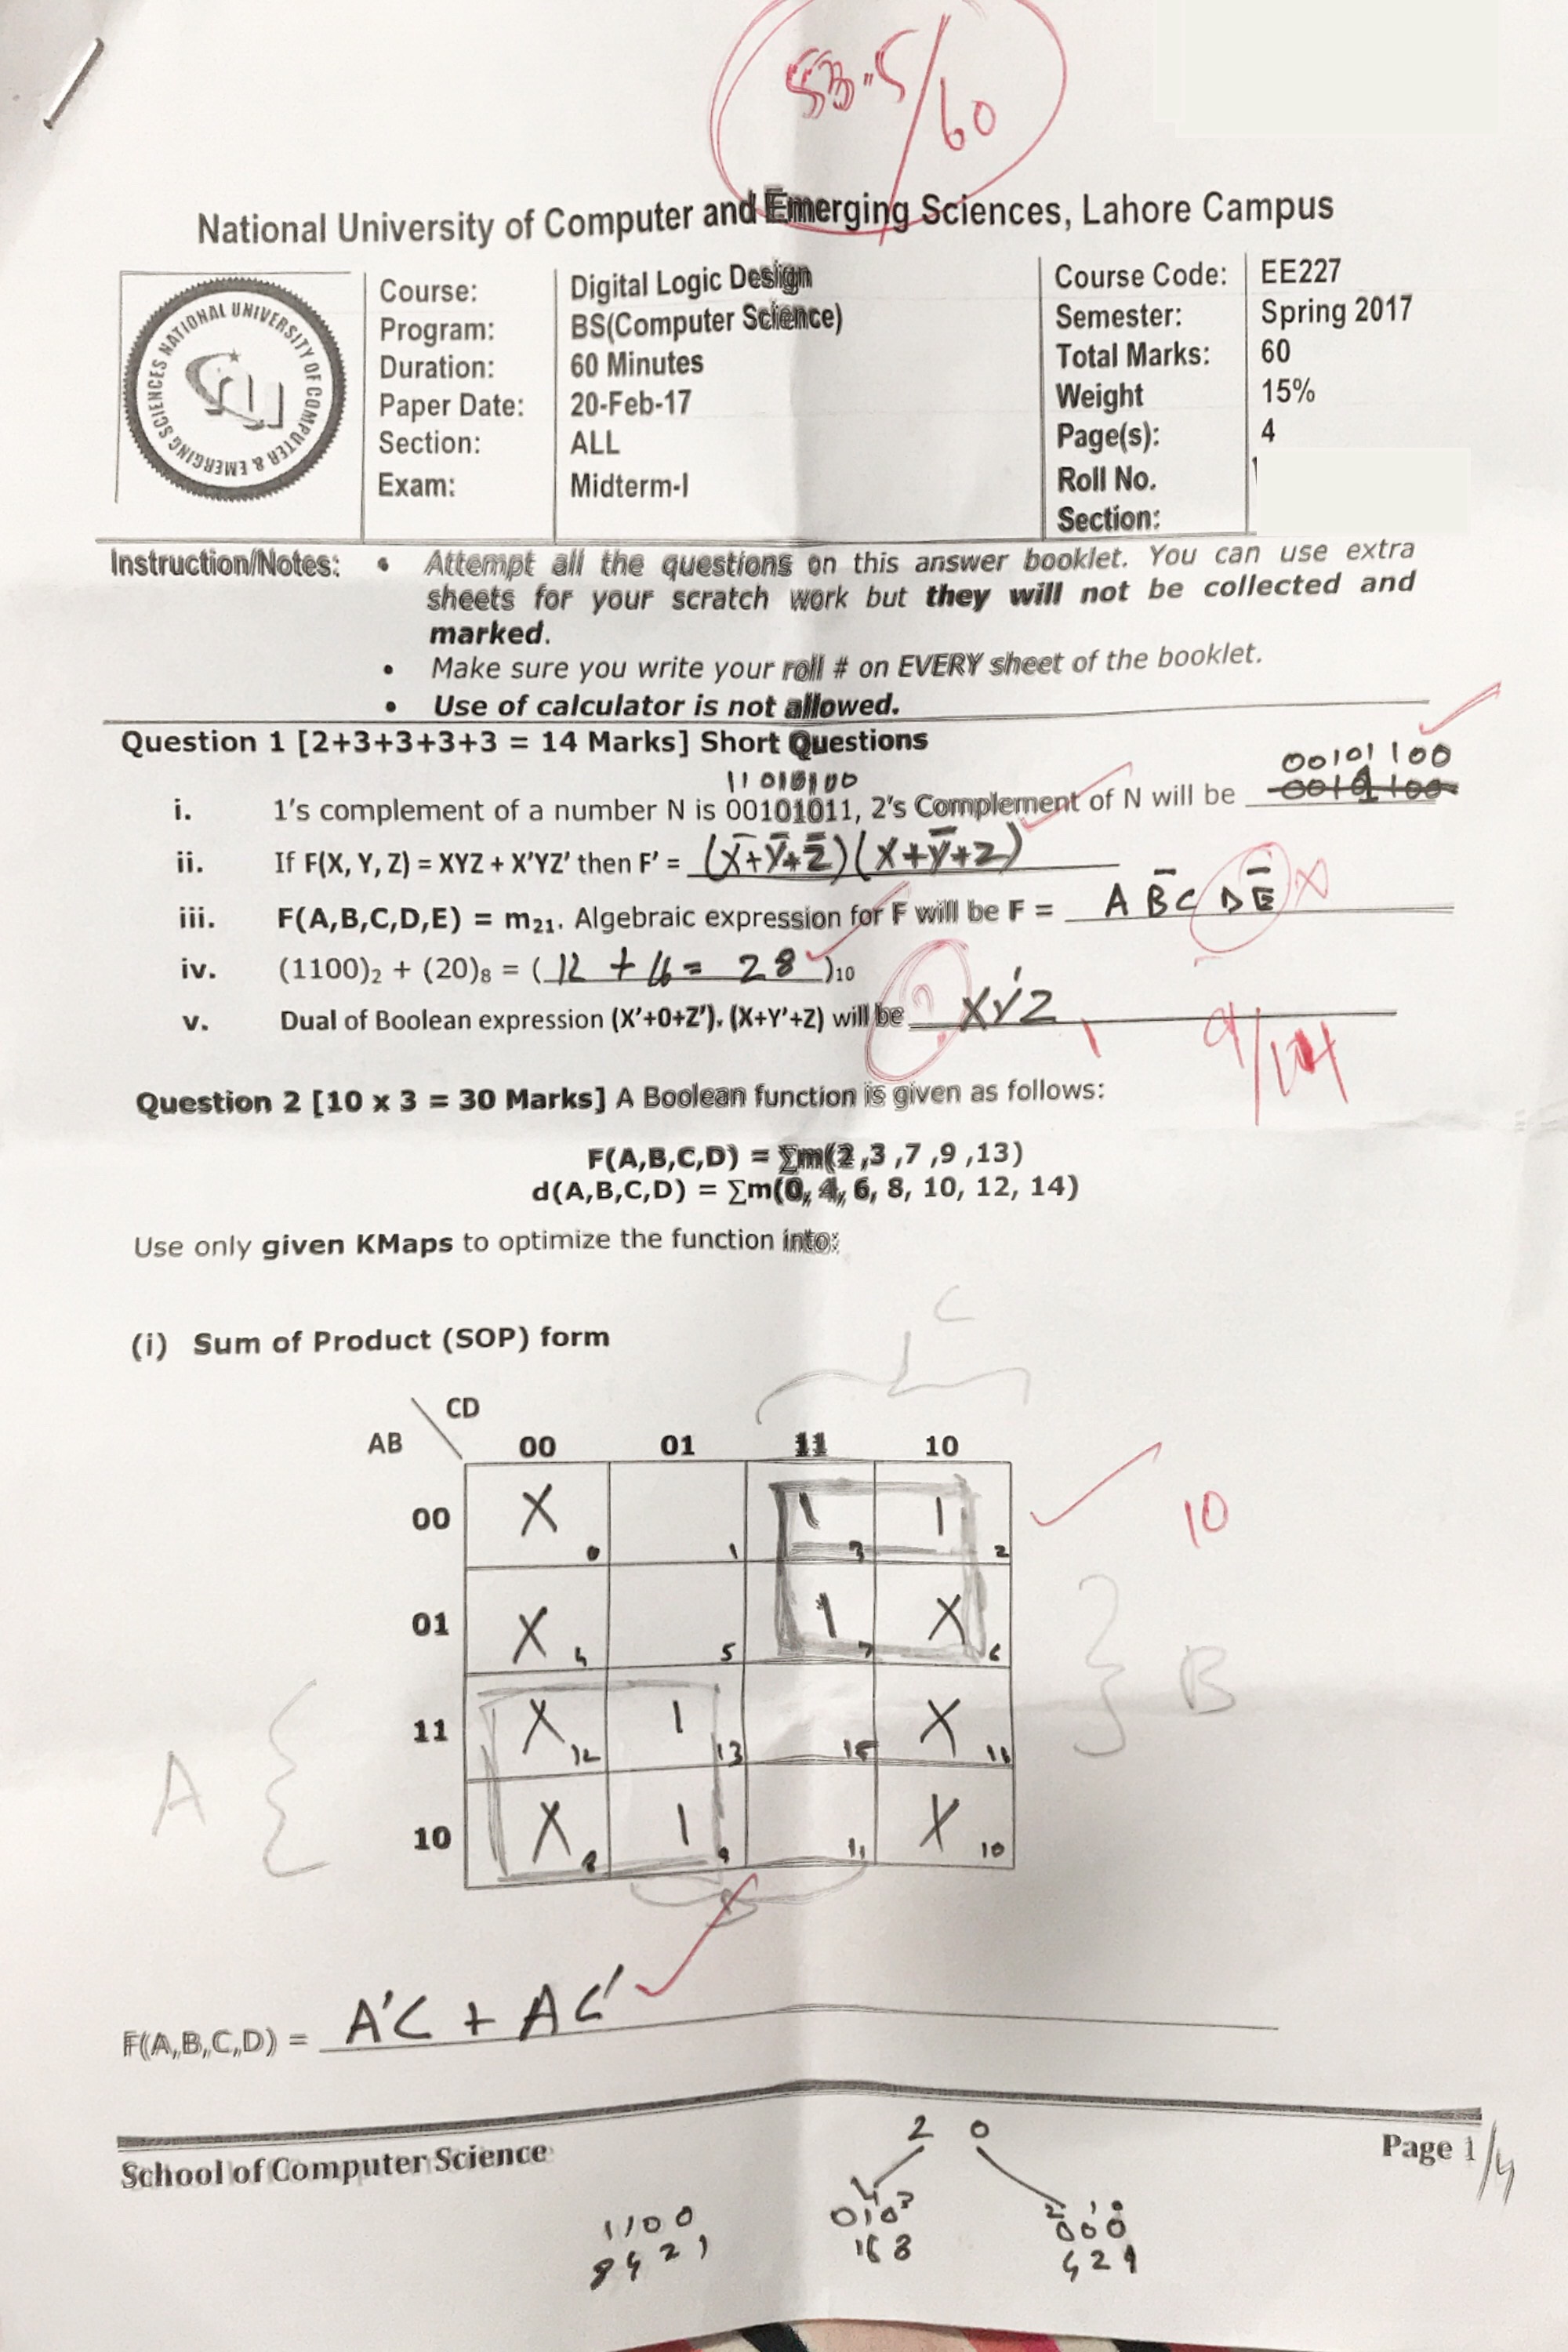 53.5/60
National University of Computer and Emerging Sciences, Lahore Campus
NATIONAL UNIVERSITY OF COMPUTER & EMERGING SCIENCES
Course: Digital Logic Design Course Code: EE227
Program: BS(Computer Science) Semester: Spring 2017
Duration: 60 Minutes Total Marks: 60
Paper Date: 20-Feb-17 Weight 15%
Section: ALL Page(s): 4
Exam: Midterm-I Roll No.
Section:
Instruction/Notes: • Attempt all the questions on this answer booklet. You can use extra
sheets for your scratch work but they will not be collected and
marked.
• Make sure you write your roll # on EVERY sheet of the booklet.
• Use of calculator is not allowed.
Question 1 [2+3+3+3+3 = 14 Marks] Short Questions
11010100 00101100
i. 1's complement of a number N is 00101011, 2's Complement of N will be
ii. If F(X, Y, Z) = XYZ + X'YZ' then F' = (X̅+Y̅+Z̅)(X+Y̅+Z)
iii. F(A,B,C,D,E) = m₂₁. Algebraic expression for F will be F = A B̅ C D E̅ X
iv. (1100)₂ + (20)₈ = ( 12 + 16 = 28 )₁₀
v. Dual of Boolean expression (X'+0+Z'). (X+Y'+Z) will be ? XY'Z
1 9/14
Question 2 [10 x 3 = 30 Marks] A Boolean function is given as follows:
F(A,B,C,D) = ∑m(2 ,3 ,7 ,9 ,13)
d(A,B,C,D) = ∑m(0, 4, 6, 8, 10, 12, 14)
Use only given KMaps to optimize the function into:
C
(i) Sum of Product (SOP) form
CD
AB 00 01 11 10
00 X 0 1 1 3 1 2 10
01 X 4 5 1 7 X 6
B
11 X 12 1 13 15 X
A
10 X 8 1 9 11 X 10
F(A,B,C,D) = A'C + AC'
School of Computer Science Page 1/4
2 0
4 3 2 1 0
1100 010 000
8421 16 8 421